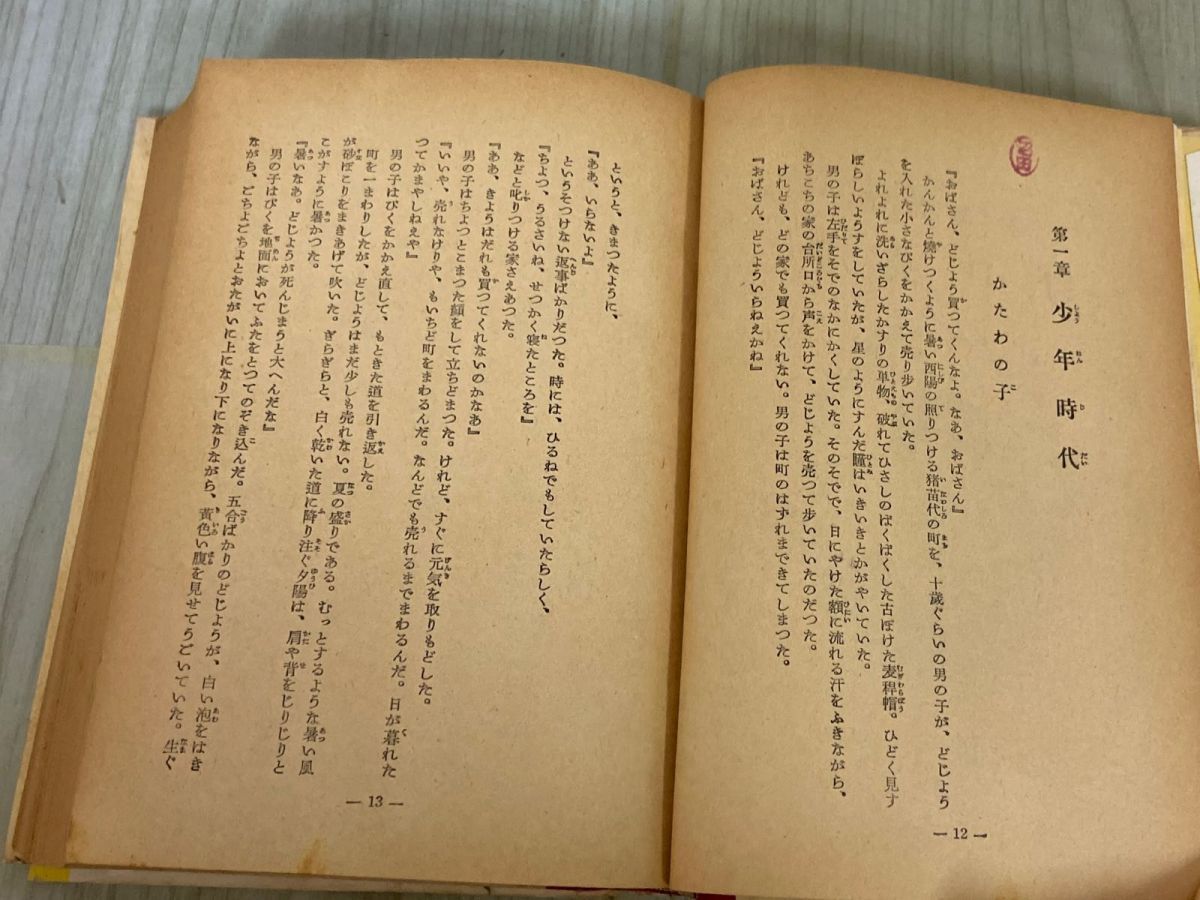 第一章 少年時代
かたわの子
『おばさん、どじょう買つてくんなよ。なあ、おばさん』
かんかんと焼けつくように暑い西陽の照りつける猪苗代の町を、十歳ぐらいの男の子が、どじょう
を入れた小さなびくをかかえて売り歩いていた。
よれよれに洗いざらしたかすりの単物、破れてひさしのぱくぱくした古ぼけた麦稈帽。ひどく見す
ぼらしいようすをしていたが、星のようにすんだ瞳はいきいきとかがやいていた。
男の子は左手をそでのなかにかくしていた。そのそでで、日にやけた額に流れる汗をふきながら、
あちこちの家の台所口から声をかけて、どじょうを売つて歩いていたのだつた。
けれども、どの家でも買つてくれない。男の子は町のはずれまできてしまつた。
『おばさん、どじょういらねえかね』
— 12 —
というと、きまつたように、
『ああ、いらないよ』
というそつけない返事ばかりだつた。時には、ひるねでもしていたらしく、
『ちょつ、うるさいね、せつかく寝たところを』
などと叱りつける家さえあつた。
『ああ、きょうはだれも買つてくれないのかなあ』
男の子はちよつとこまつた顔をして立ちどまつた。けれど、すぐに元気を取りもどした。
『いいや、売れなけりや、もいちど町をまわるんだ。なんどでも売れるまでまわるんだ。日が暮れた
つてかまやしねえや』
男の子はびくをかかえ直して、もときた道を引き返した。
町を一まわりしたが、どじょうはまだ少しも売れない。夏の盛りである。むっとするような暑い風
が砂ぼこりをまきあげて吹いた。ぎらぎらと、白く乾いた道に降り注ぐ夕陽は、肩や背をじりじりと
こがすように暑かつた。
『暑いなあ。どじょうが死んじまうと大へんだな』
男の子はびくを地面においてふたをとつてのぞき込んだ。五合ばかりのどじょうが、白い泡をはき
ながら、ごちょごちょとおたがいに上になり下になりながら、黄色い腹を見せてうごいていた。生ぐ
— 13 —